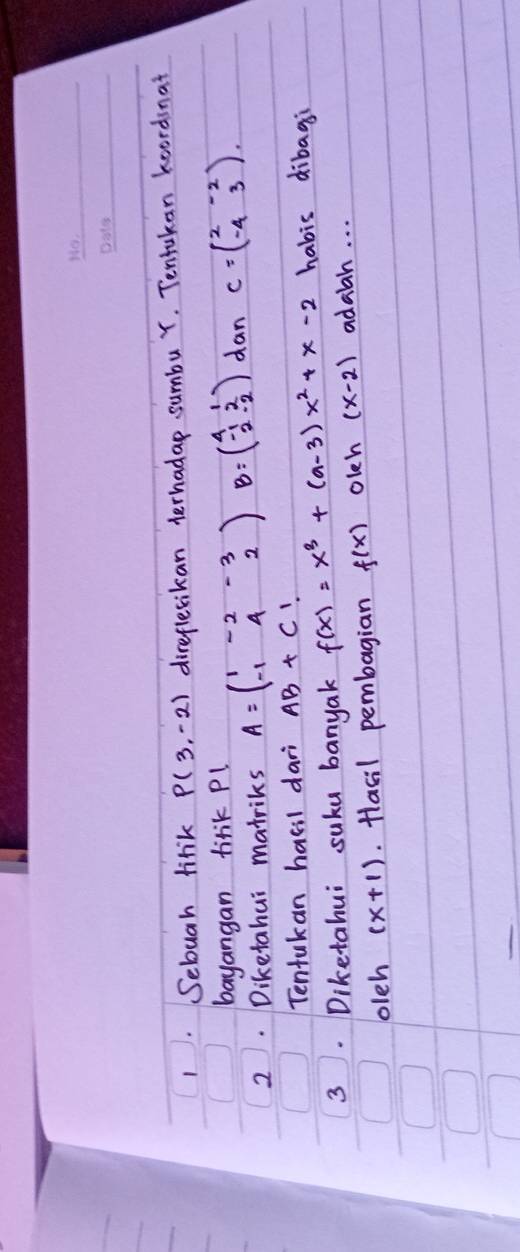 No.
Date
1. Sebuah titik P(3,-2) direfleksikan terhadap sumbu Y. Tentukan koordinat
bayangan titik P!
2. Diketahui matriks A = (1 -2 -3 / -1 4 2) B = (4 1 / -1 2 / 2 -2) dan C = (2 -2 / -4 3).
Tentukan hasil dari AB + C!
3. Diketahui suku banyak f(x) = x³ + (a-3)x² + x -2 habis dibagi
oleh (x+1). Hasil pembagian f(x) oleh (x-2) adalah...